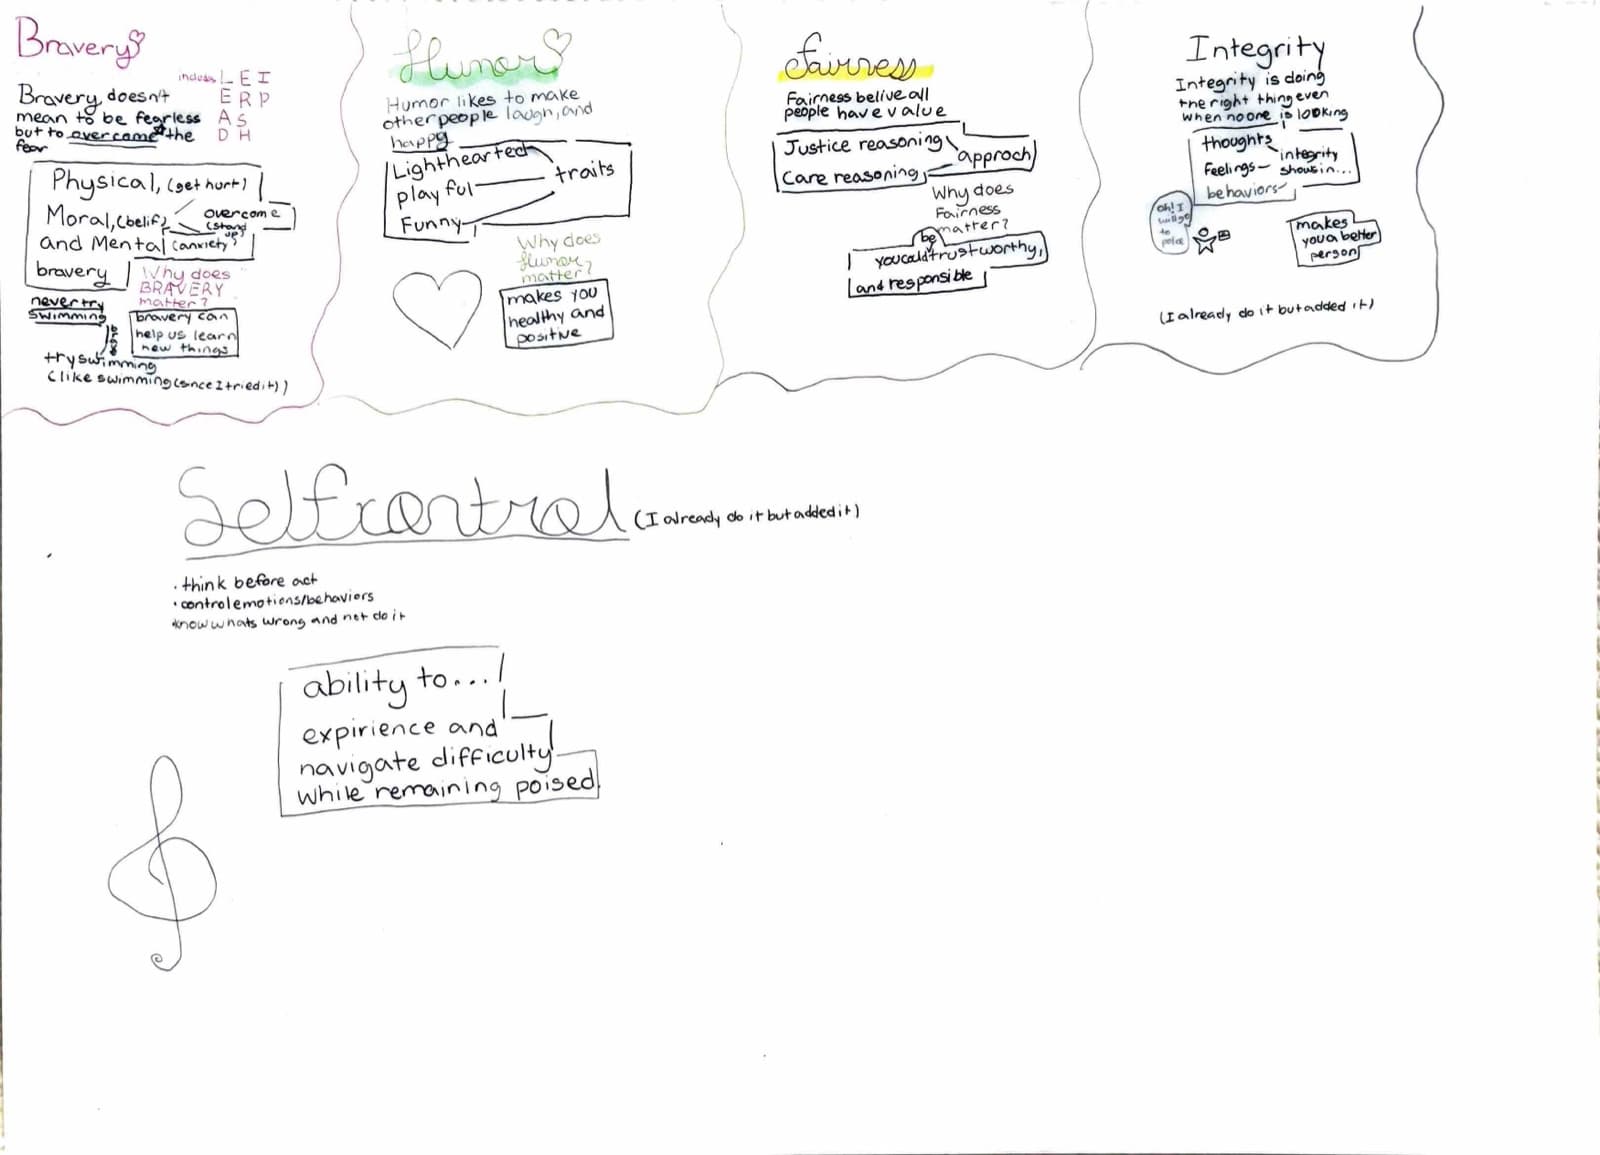 Bravery
includes L E I
E R P
A S
D H
Bravery doesn't
mean to be fearless
but to overcome the
fear
Physical, (get hurt)
Moral, (belif)
overcome
(stand
up)
and Mental (anxiety)
bravery
Why does
BRAVERY
matter?
never try
swimming
bravery can
help us learn
new things
try swimming
(like swimming (since I tried it))
Humor
Humor likes to make
other people laugh, and
happy
Lighthearted
playful
Funny
traits
Why does
Humor
matter?
makes you
healthy and
positive
Fairness
Fairness belive all
people have value
Justice reasoning
Care reasoning
approch
Why does
Fairness
matter?
be
you could trustworthy,
and responsible
Integrity
Integrity is doing
the right thing even
when no one is looking
thoughts
Feelings
behaviors
integrity
shows in...
oh! I
will go
to
makes
you a better
person
(I already do it but added it)
Selfcontrol (I already do it but added it)
• think before act
• control emotions/behaviors
know whats wrong and not do it
ability to...
expirience and
navigate difficulty
while remaining poised